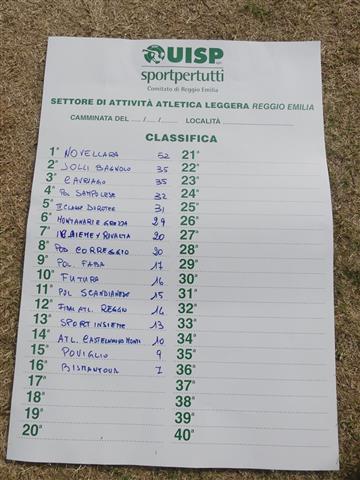 UISP
sportpertutti
Comitato di Reggio Emilia
SETTORE DI ATTIVITÀ ATLETICA LEGGERA REGGIO EMILIA
CAMMINATA DEL ..../..../.... LOCALITÀ
CLASSIFICA
1° NOVELLARA 52
2° JOLLI BAGNOLO 35
3° CAVRIAGO 35
4° POL SAMPOLESE 32
5° 31
6° MONTANARI E GRUZZA 29
7° RIVALTA 20
8° POD CORREGGIO 20
9° POL. FABA 17
10° FUTURA 16
11° POL SCANDIANESE 15
12° ATL. REGGIO 14
13° SPORT INSIEME 13
14° ATL. CASTELNOVO MONTI 10
15° POVIGLIO 9
16° BISMANTOVA 7
17°
18°
19°
20°
21°
22°
23°
24°
25°
26°
27°
28°
29°
30°
31°
32°
33°
34°
35°
36°
37°
38°
39°
40°